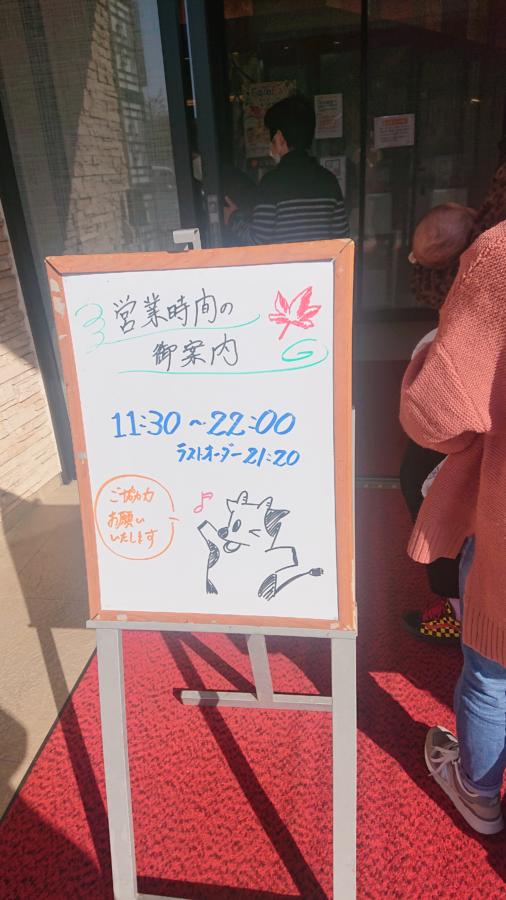 営業時間の
御案内
11:30～22:00
ラストオーダー21:20
ご協力
お願い
いたします